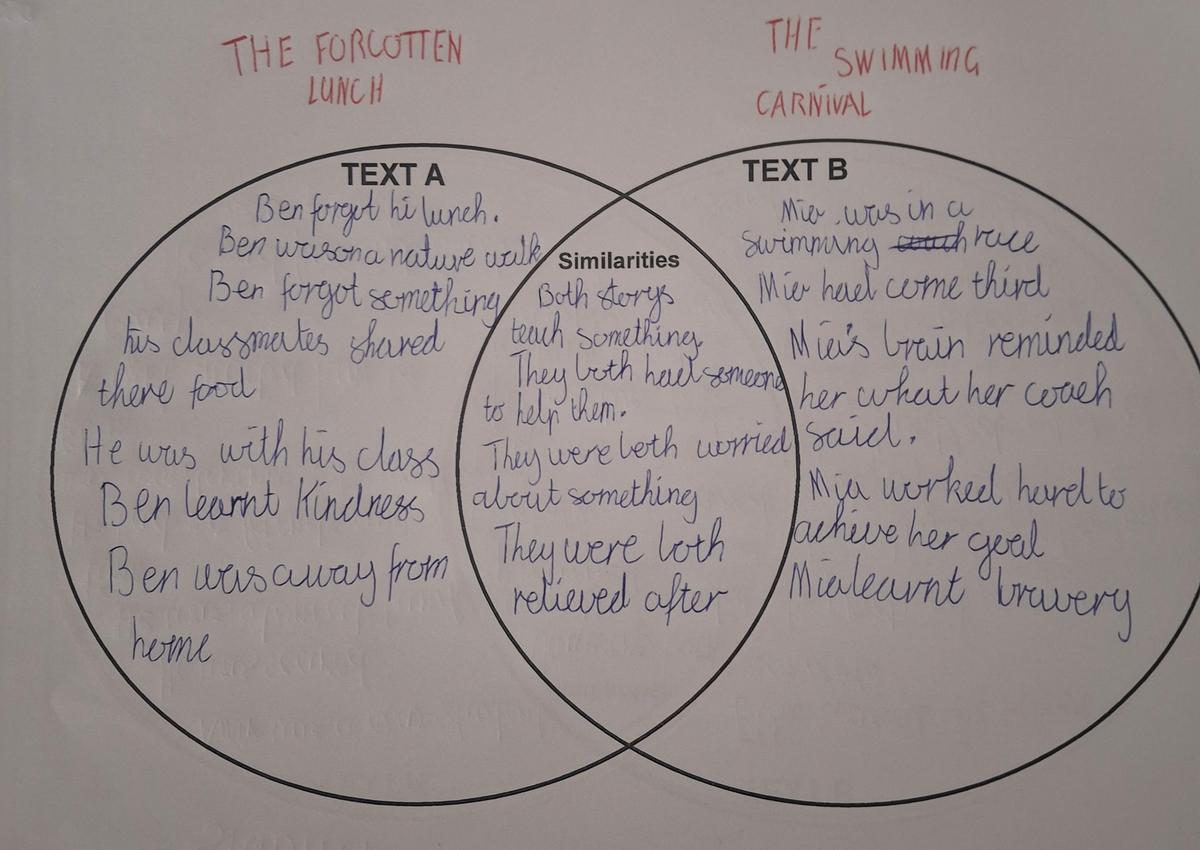 THE FORGOTTEN
LUNCH
THE
SWIMMING
CARNIVAL
TEXT A
Ben forgot hi lunch.
Ben was on a nature walk
Ben forgot something
his classmates shared
there food
He was with his class
Ben learnt Kindness
Ben was away from
home
Similarities
Both storys
teach something
They both had someone
to help them.
They were both worried
about something
They were both
relieved after
TEXT B
Mia was in a
swimming race
Mia had come third
Mia's brain reminded
her what her coach
said.
Mia worked hard to
achieve her goal
Mia learnt bravery